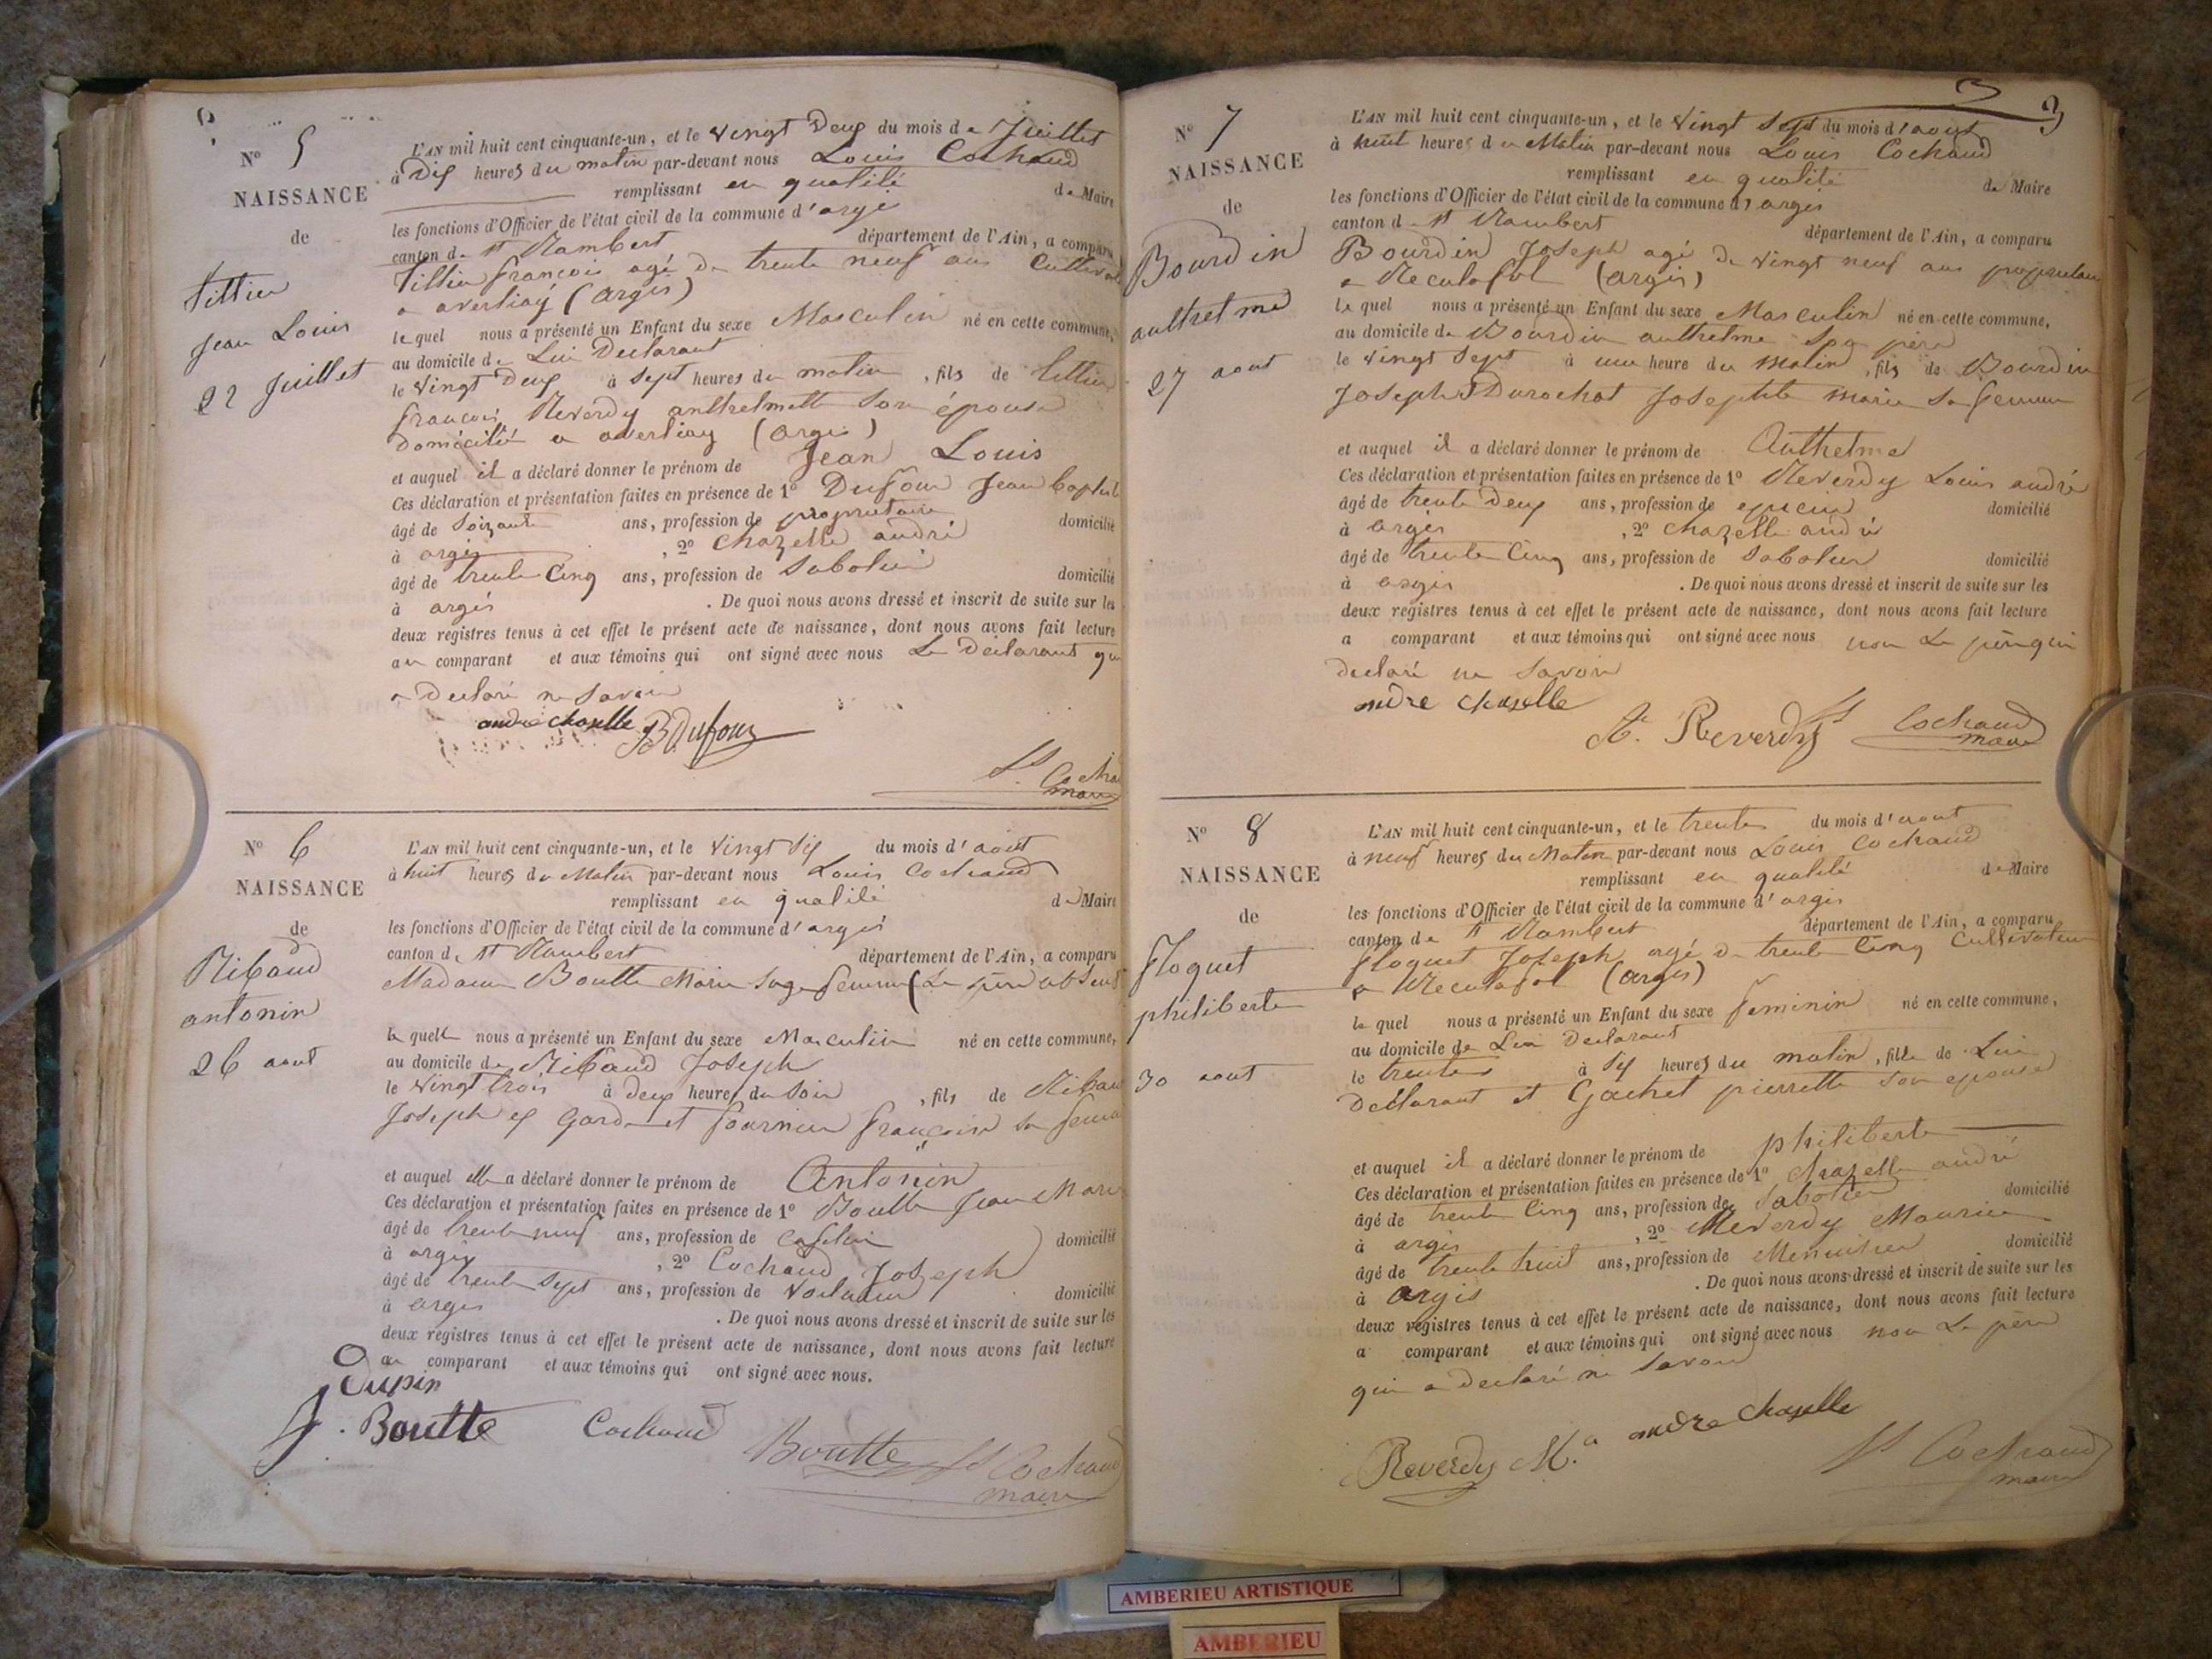 N° 5
NAISSANCE
de
tittien
Jean Louis
22 Juillet
L'AN mil huit cent cinquante-un, et le Vingt Deux du mois de Juillet
à Dix heures du matin par-devant nous Louis Cochaud
remplissant en qualité de Maire
les fonctions d'Officier de l'état civil de la commune d'argis
canton de st Rambert département de l'Ain, a comparu
tittien francois agé de trente neuf ans
a averliay (argis)
lequel nous a présenté un Enfant du sexe Masculin né en cette commune,
au domicile de Lui Declarant
le Vingt Deux à Sept heures du matin, fils de tittien
francois, Reverdy anthelmette Son épouse
Domicilié a averliay (argis)
et auquel il a déclaré donner le prénom de Jean Louis
Ces déclaration et présentation faites en présence de 1° Dufour Jean baptiste
âgé de Soixante ans, profession de propriétaire domicilié
à argis, 2° Chazelle andré
âgé de trente Cinq ans, profession de Sabotier domicilié
à argis. De quoi nous avons dressé et inscrit de suite sur les
deux registres tenus à cet effet le présent acte de naissance, dont nous avons fait lecture
au comparant et aux témoins qui ont signé avec nous Le Declarant qui
a Declaré ne Savoir
andre chaselle B Dufour
Ls Cocha
maire
N° 6
NAISSANCE
de
Ribaud
antonin
26 aout
L'AN mil huit cent cinquante-un, et le Vingt Six du mois d'aout
à huit heures du Matin par-devant nous Louis Cochaud
remplissant en qualité de Maire
les fonctions d'Officier de l'état civil de la commune d'argis
canton de st Rambert département de l'Ain, a comparu
Madame Boutte Marie Sage femme (Le père absent
laquelle nous a présenté un Enfant du sexe Masculin né en cette commune,
au domicile de Ribaud Joseph
le Vingt trois à Deux heures du Soir, fils de Ribaud
Joseph ex Garde et fournier françoise sa femme
et auquel elle a déclaré donner le prénom de Antonin
Ces déclaration et présentation faites en présence de 1° Boutte Jean Marie
âgé de trente neuf ans, profession de domicilié
à argis, 2° Cochaud Joseph
âgé de trente Sept ans, profession de Voiturier domicilié
à argis. De quoi nous avons dressé et inscrit de suite sur les
deux registres tenus à cet effet le présent acte de naissance, dont nous avons fait lecture
au comparant et aux témoins qui ont signé avec nous.
Dupin
J. Boutte Cochaud Boutte Ls Cochaud
maire
3
N° 7
NAISSANCE
de
Bourdin
anthelme
27 aout
L'AN mil huit cent cinquante-un, et le Vingt Sept du mois d'aout
à huit heures du Matin par-devant nous Louis Cochaud
remplissant en qualité de Maire
les fonctions d'Officier de l'état civil de la commune d'argis
canton de st Rambert département de l'Ain, a comparu
Bourdin Joseph agé de vingt neuf ans propriétaire
a Reculafol (argis)
lequel nous a présenté un Enfant du sexe Masculin né en cette commune,
au domicile de Bourdin anthelme Son père
le Vingt Sept à une heure du matin, fils de Bourdin
Joseph et Durochat Josephte marie Sa femme
et auquel il a déclaré donner le prénom de Anthelme
Ces déclaration et présentation faites en présence de 1° Reverdy Louis andré
âgé de trente Deux ans, profession de epicier domicilié
à argis, 2° Chazelle andré
âgé de trente Cinq ans, profession de Sabotier domicilié
à argis. De quoi nous avons dressé et inscrit de suite sur les
deux registres tenus à cet effet le présent acte de naissance, dont nous avons fait lecture
a comparant et aux témoins qui ont signé avec nous non Le père qui
declaré ne Savoir
andre chaselle
Reverdy Ls Cochaud
maire
N° 8
NAISSANCE
de
Floquet
philiberte
30 aout
L'AN mil huit cent cinquante-un, et le trente du mois d'aout
à neuf heures du Matin par-devant nous Louis Cochaud
remplissant en qualité de Maire
les fonctions d'Officier de l'état civil de la commune d'argis
canton de st Rambert département de l'Ain, a comparu
floquet Joseph agé de trente Cinq Cultivateur
a Reculafol (argis)
lequel nous a présenté un Enfant du sexe feminin né en cette commune,
au domicile de Lui Declarant
le trente à Six heures du matin, fille de Lui
Declarant et Gachet pierrette son epouse
et auquel il a déclaré donner le prénom de philiberte
Ces déclaration et présentation faites en présence de 1° Chazelle andré
âgé de trente Cinq ans, profession de Sabotier domicilié
à argis, 2° Reverdy Maurice
âgé de trente huit ans, profession de Menuisier domicilié
à argis. De quoi nous avons dressé et inscrit de suite sur les
deux registres tenus à cet effet le présent acte de naissance, dont nous avons fait lecture
a comparant et aux témoins qui ont signé avec nous non Le père
qui a declaré ne Savoir
Reverdy M.ce andre chaselle Ls Cochaud
maire
AMBERIEU ARTISTIQUE
AMBERIEU